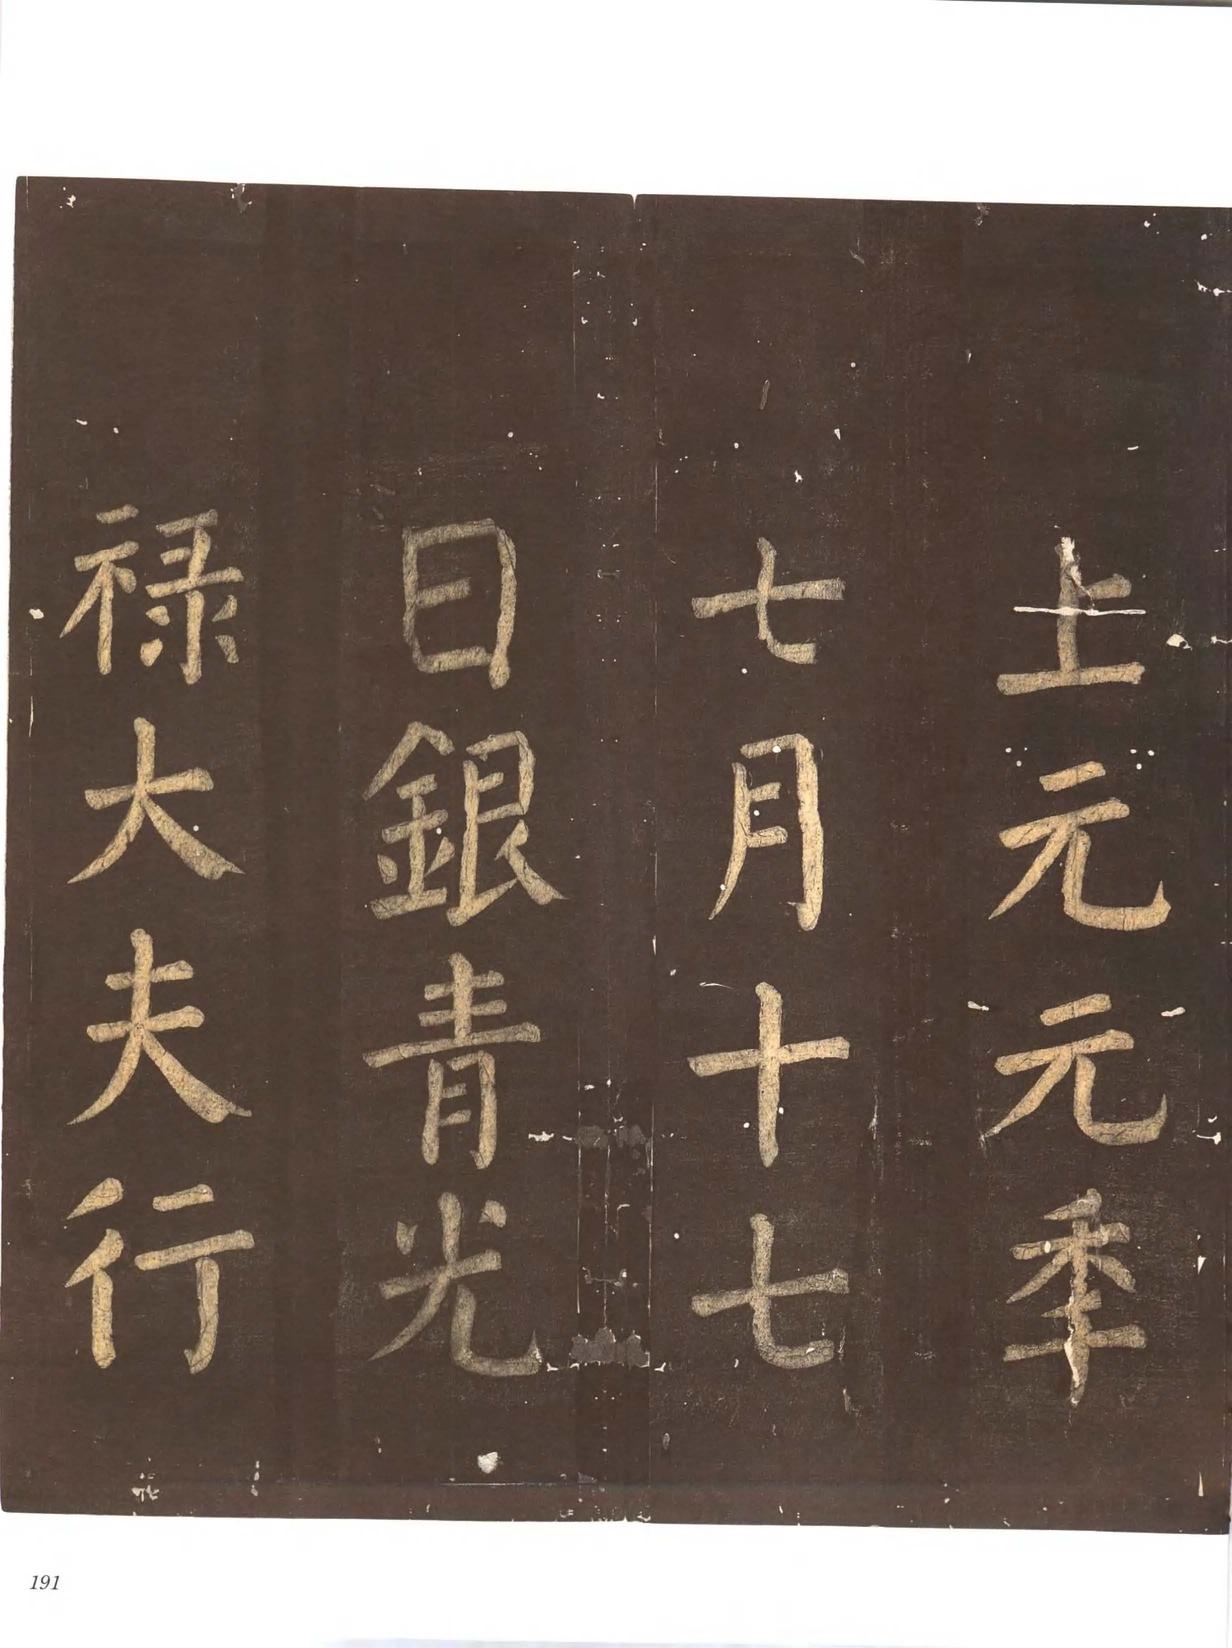 上元元季
七月十七
日銀青光
禄大夫行
191